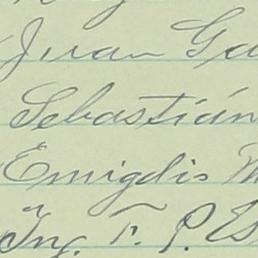 Juan Ga
Sebastián
Emigdio M
Ing. F. P. Es